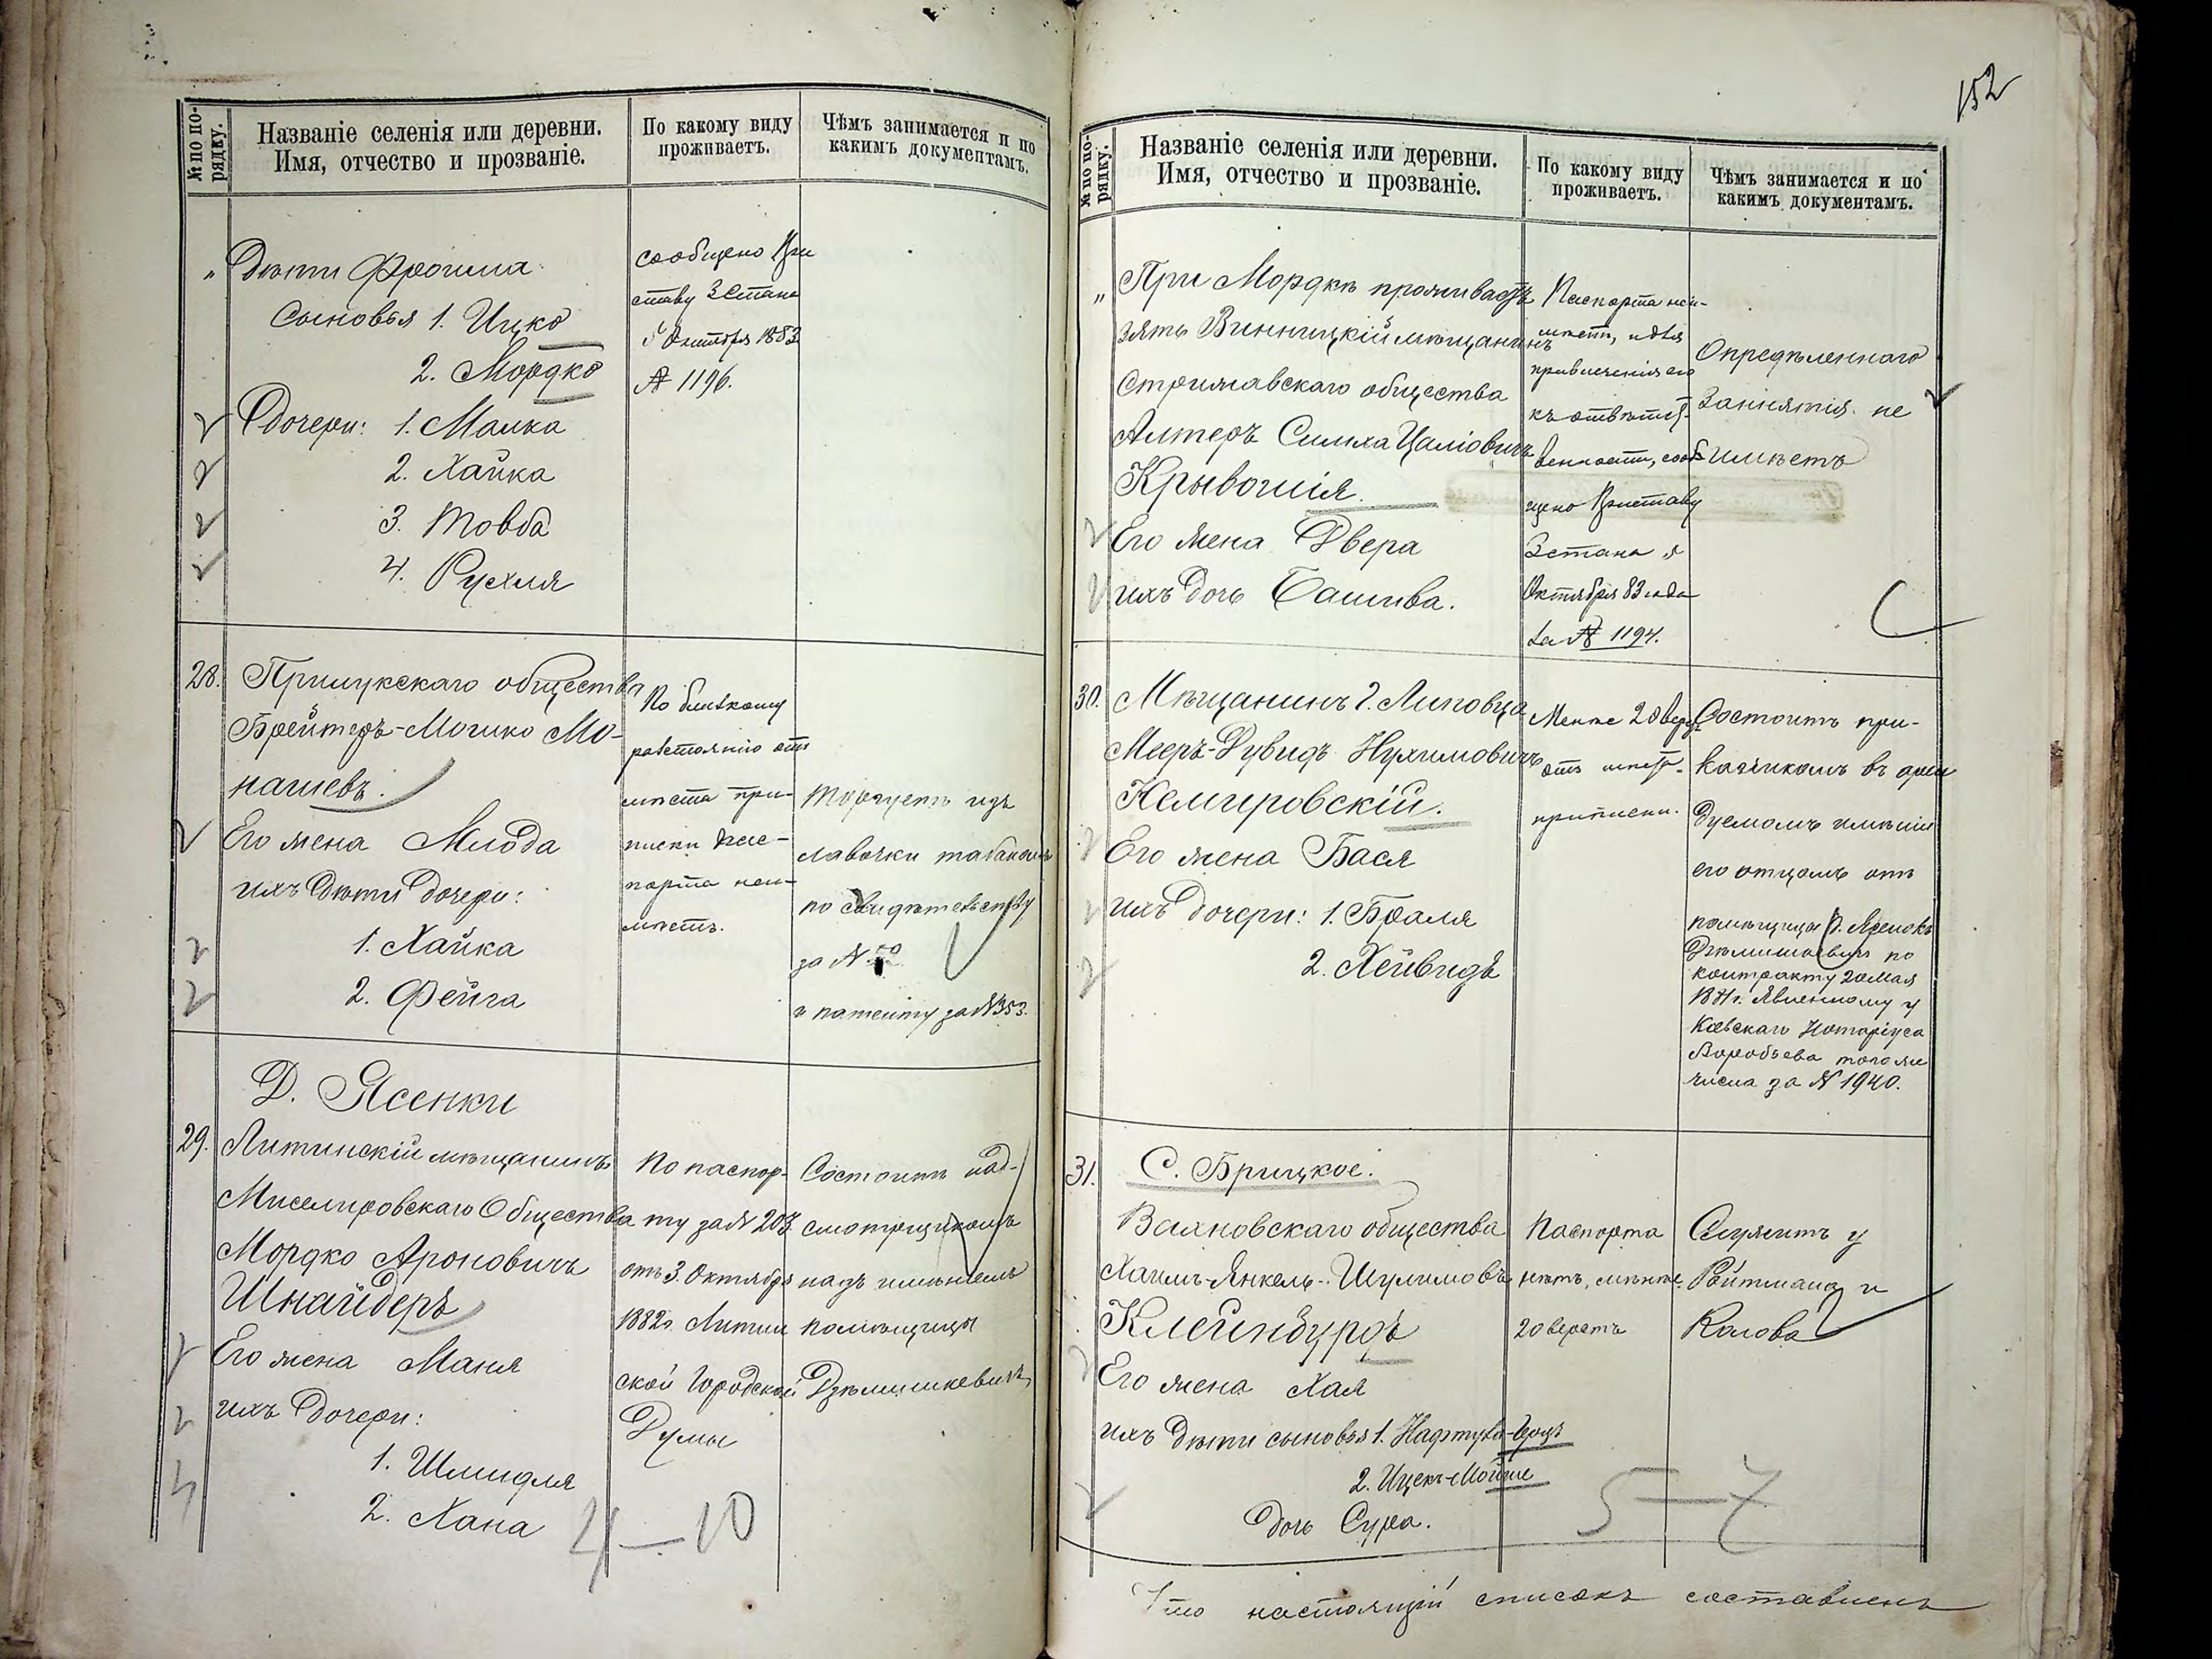 № по по-
рядку.
Названіе селенія или деревни.
Имя, отчество и прозваніе.
По какому виду
проживаетъ.
Чѣмъ занимается и по
какимъ документамъ.
„ Дѣти Фроима:
Сыновья 1. Ицко
2. Мордко
Дочери: 1. Малка
2. Хайка
3. Товба
4. Рухля
сообщено При
ставу 3 Стана
Октября 1883
№ 1196.
28. Прилукскаго общества
Брейтеръ-Мошко Мо-
нашевъ.
Его жена Млода
ихъ Дѣти дочери:
1. Хайка
2. Фейга
По близкому
разстоянію отъ
мѣста при-
писки пас-
порта неи-
мѣетъ.
Торгуетъ изъ
лавочки табакомъ
по свидѣтельству
за №
и патенту за №353.
Д. Ясенки
29. Литинскій мѣщанинъ
Мизенировскаго Общества
Мордко Ароновичъ
Шнайдеръ
Его жена Маня
ихъ Дочери:
1. Шмидля
2. Хана
По паспор-
ту за № 203.
отъ 3. Октября
1882г. Литин
ской Городской
Думы
Состоитъ над-
смотрщикомъ
надъ имѣніемъ
помѣщицы
4 — 10
152
№ по по-
рядку.
Названіе селенія или деревни.
Имя, отчество и прозваніе.
По какому виду
проживаетъ.
Чѣмъ занимается и по
какимъ документамъ.
„ При Мордкѣ проживаетъ
зять Винницкій мѣщанинъ
Стрижавскаго общества
Алтеръ Симха Цаліовичъ
Крывошія.
Его жена Двера
ихъ дочь Башива.
Паспорта неи-
мѣетъ, и для
привлеченія его
къ отвѣтст-
венности, сооб
щено Приставу
3 стана
Октября 83 года
за № 1194.
Опредѣленнаго
Занятія не
имѣетъ
30. Мѣщанинъ г. Липовца
Мееръ-Дувидъ Нухимовичъ
Немировскій.
Его жена Бася
ихъ дочери: 1. Браля
2. Хейвидъ
Менѣе 20 верстъ
отъ мѣст.
приписки.
Состоитъ при-
кащикомъ въ арен
дуемомъ имѣніи
его отцомъ отъ
помѣщицы
по
контракту 20 мая
1881г. Явленному у
Кіевскаго Нотаріуса
Воробьева того же
числа за № 1940.
31. С. Брицкое.
Вахновскаго общества
Хаимъ-Янкель-Шулимовъ
Клейнбурдъ
Его жена Хая
ихъ дѣти сыновья 1. Нафтула-Герцъ
2. Ицекъ-Мойше
дочь Сура.
Паспорта
нѣтъ, менѣе
20 верстъ
Служитъ у
Ройтмана и
5 — 7
Что настоящій списокъ составленъ